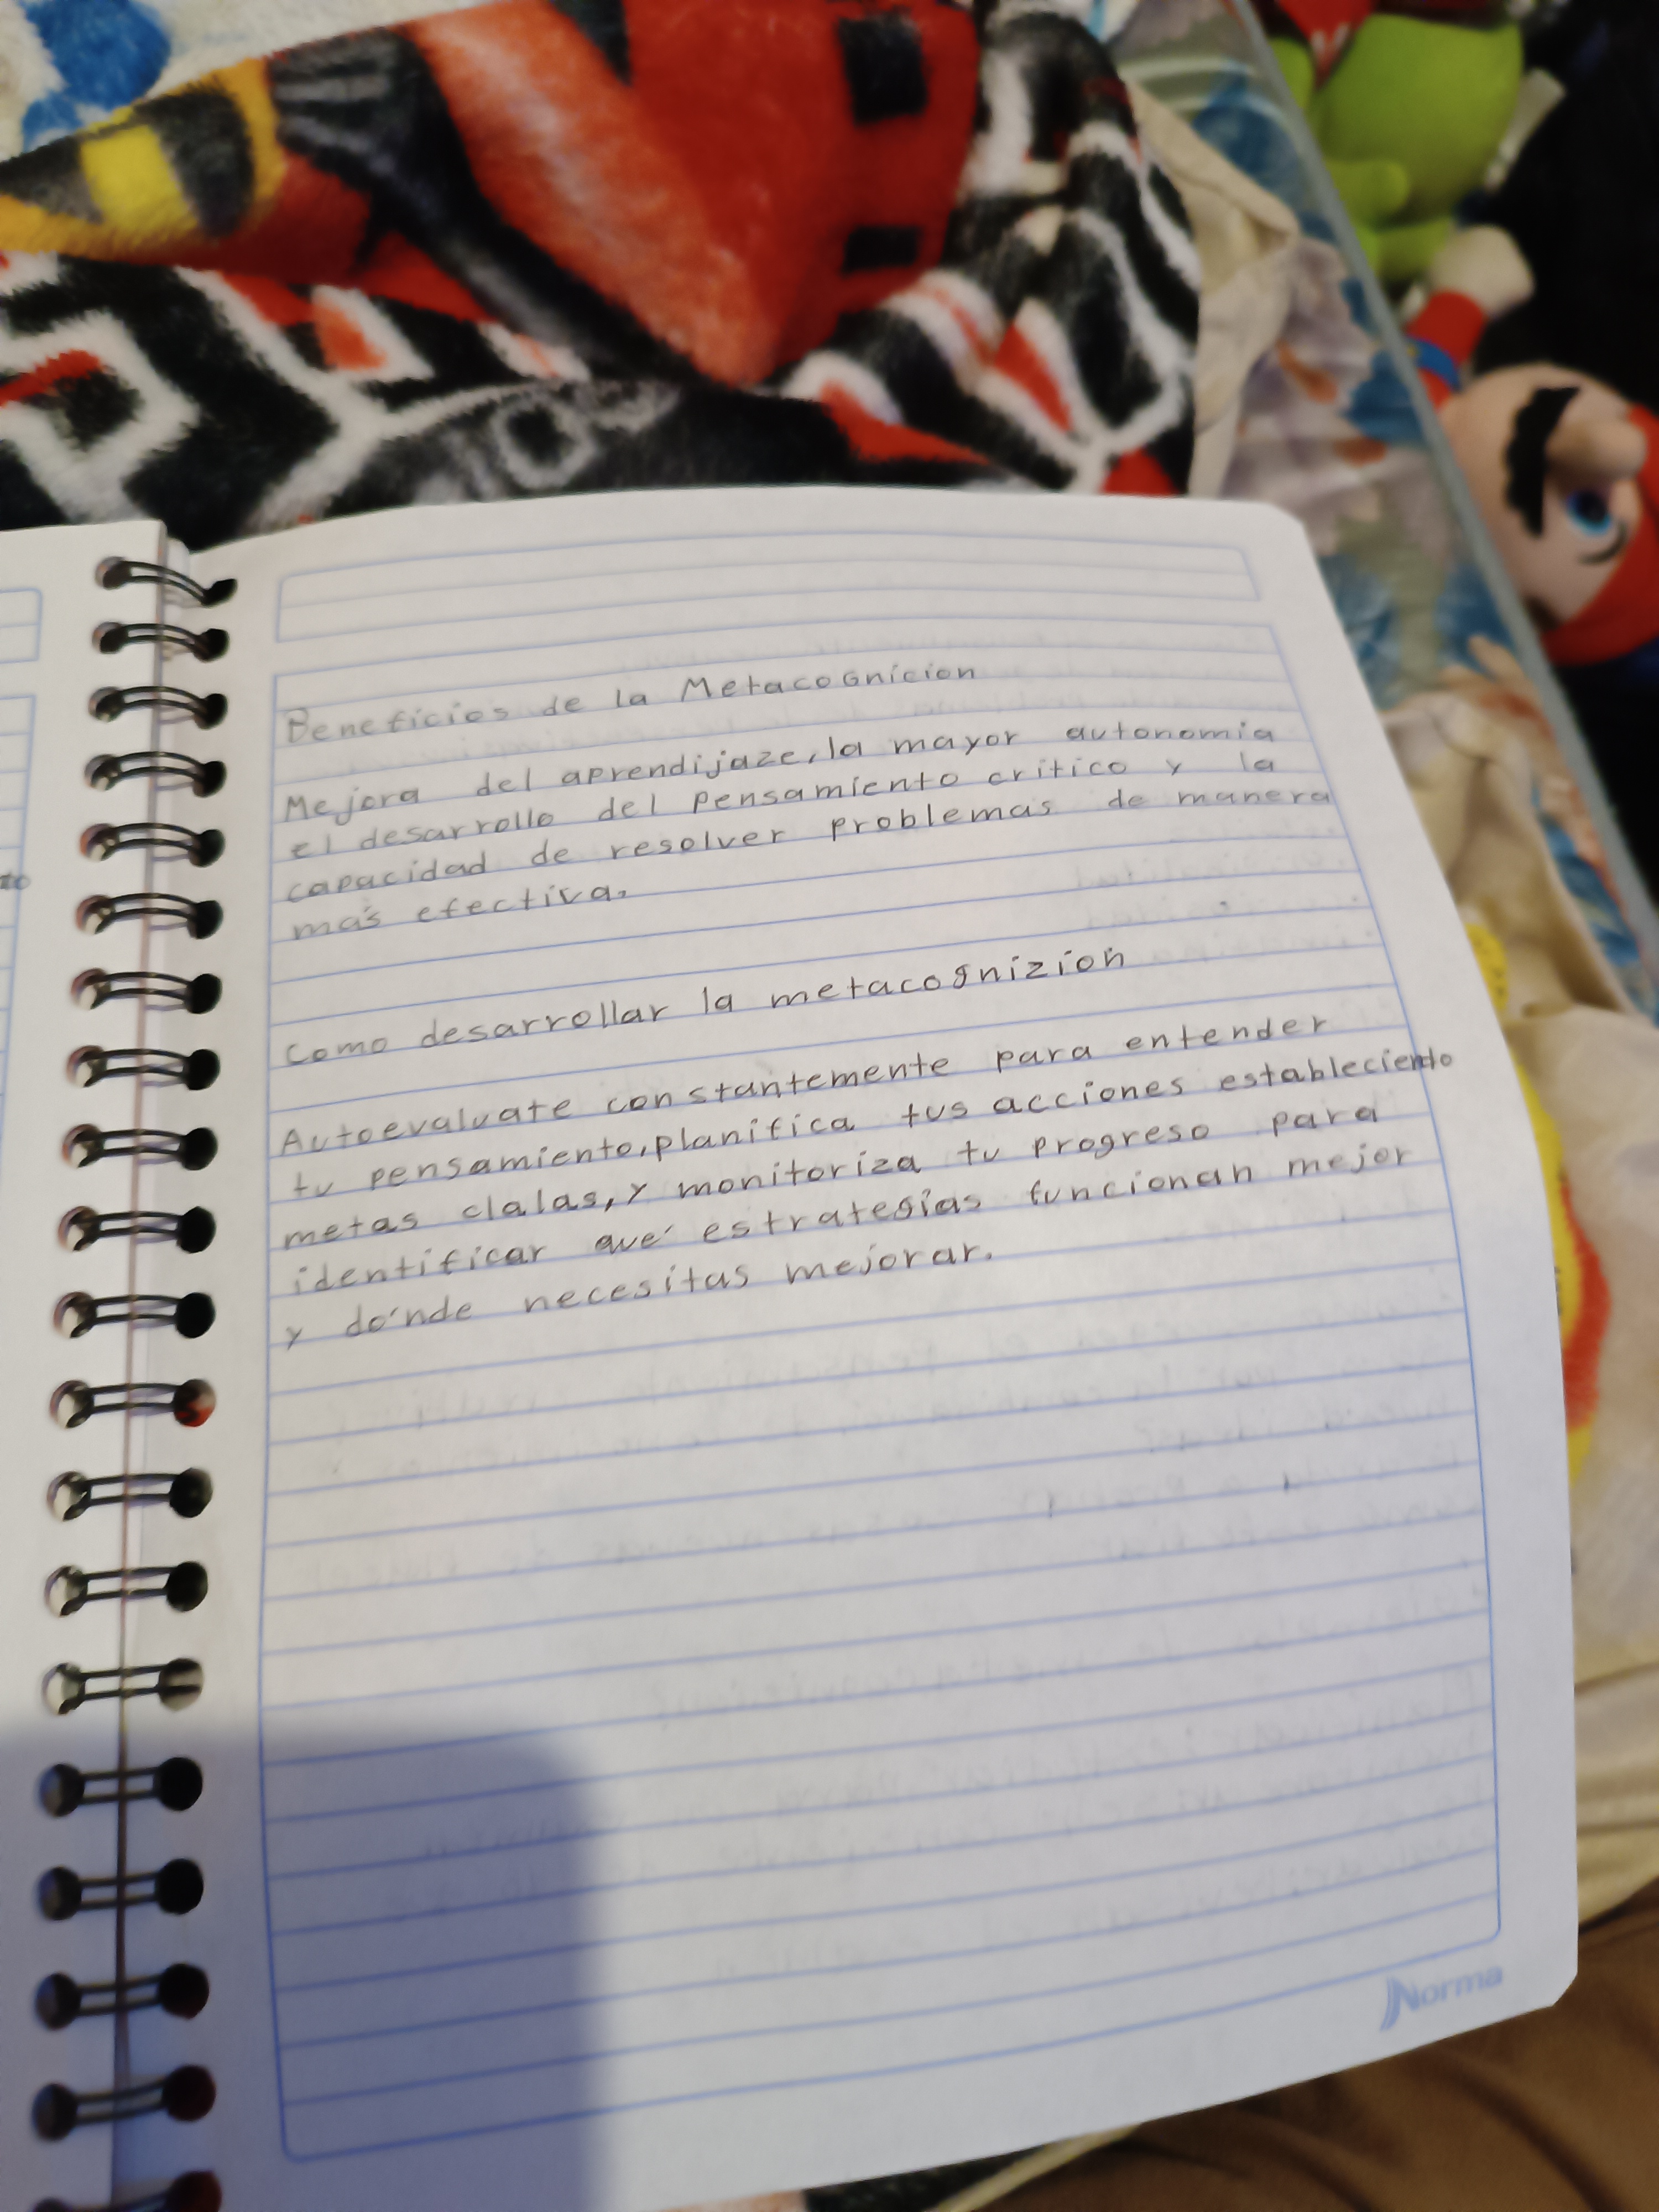 Beneficios de la Metacognicion
Mejora del aprendijaze, la mayor autonomia
el desarrollo del pensamiento critico y la
capacidad de resolver problemas de manera
más efectiva.
Como desarrollar la metacognizion
Autoevaluate constantemente para entender
tu pensamiento, planifica tus acciones estableciendo
metas clalas, y monitoriza tu progreso para
identificar qué estrategias funcionan mejor
y dónde necesitas mejorar.
Norma